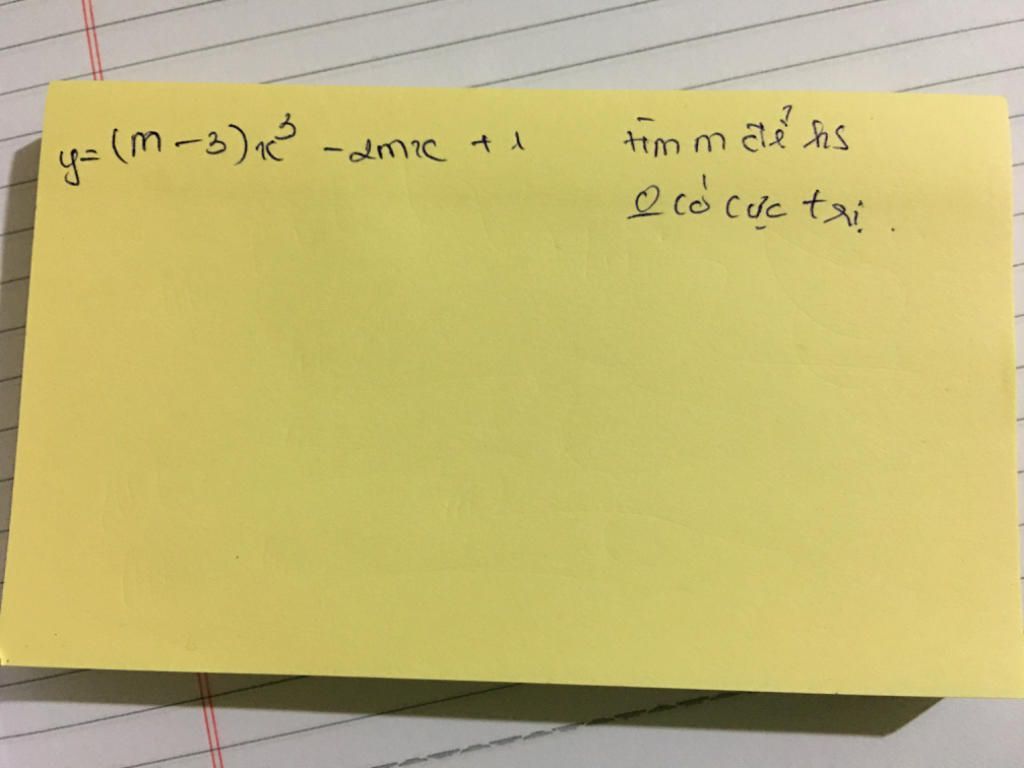 y=(m-3)x³ - 2mx + 1 tìm m để hs
0 có cực trị.